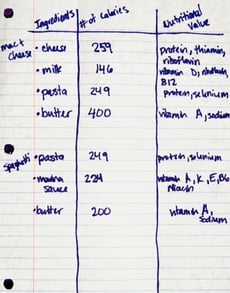 Ingredients # of calories Nutritional Value
mac + cheese
• cheese 259 protein, thiamin, riboflavin
• milk 146 vitamin D, riboflavin, B12
• pasta 249 protein, selenium
• butter 400 vitamin A, sodium
spaghetti • pasta 249 protein, selenium
• marina sauce 224 vitamin A, K, E, B6 Niacin
• butter 200 vitamin A, sodium